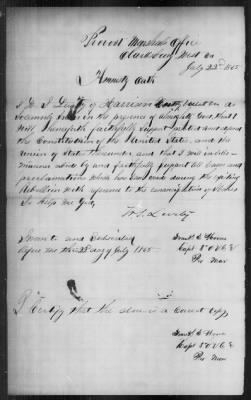 Provost Marshals Office
Clarksburg West Va
July 22d 1865
Amnesty Oath
I of Harrison County
solemnly in the presence of Almighty God, that I
will henceforth faithfully support protect and defend
the Constitution of the United States, and the
Union of States thereunder and that I will in like
manner abide by and faithfully support all laws and
proclamations which have been made during the existing
Rebellion with reference to the emancipation of Slaves
So help me God,
Sworn to and Subscribed
before me this day of July 1865
Capt
Pro Mar
I Certify that the above is a Correct Copy
Capt
Pro Mar